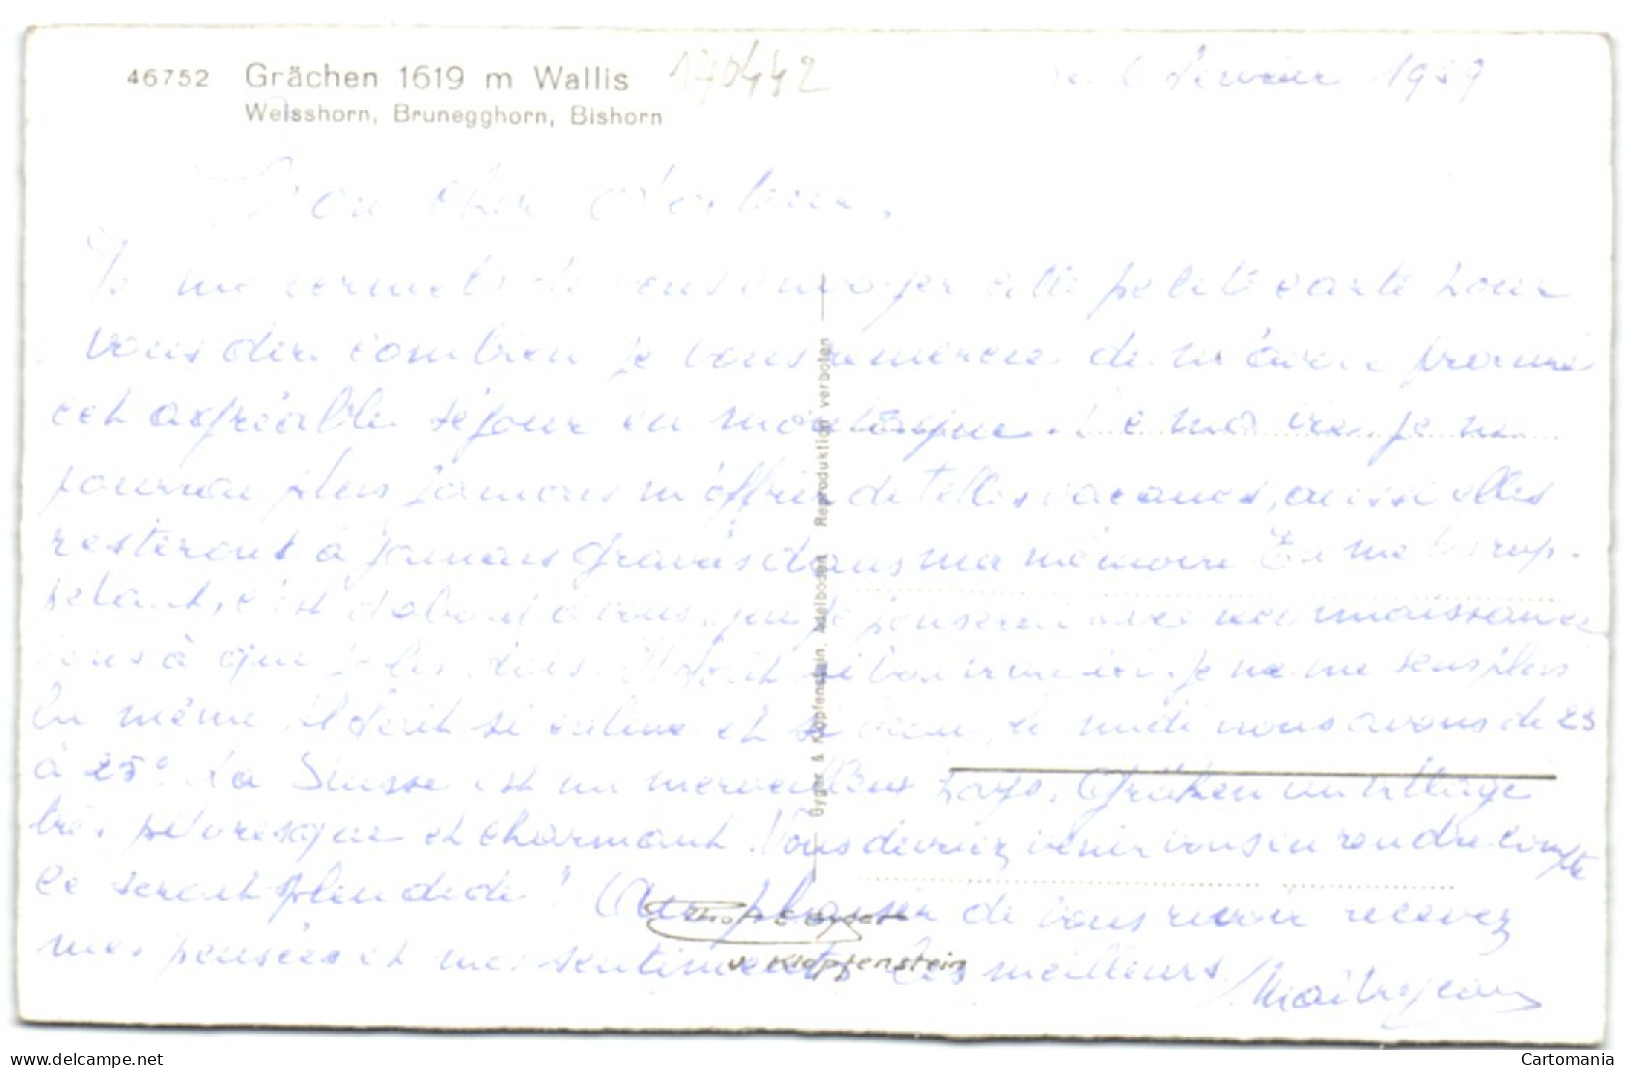 46752 Grächen 1619 m Wallis
Weisshorn, Brunegghorn, Bishorn
170442
1959
Mon cher
Je me permets de vous envoyer cette petite carte pour
vous dire combien je vous remercie de m'avoir procuré
cet agréable séjour en montagne. De ma vie je ne
pourrai plus jamais m'offrir de telles vacances, aussi elles
resteront à jamais gravés dans ma mémoire En me les rap-
pelant, c'est d'abord à vous que je penserai avec reconnaissance
vous à qui je les dois. Il fait si bon vivre ici. je ne me sens plus
la même, il fait si calme et si beau, le midi nous avons de 23
à 25° La Suisse est un merveilleux pays. Grächen un village
très pittoresque et charmant. Vous devriez venir vous en rendre compte
ce serait splendide! Au plaisir de vous revoir recevez
mes pensées et mes sentiments les meilleurs.
Gyger & Klopfenstein, Adelboden Reproduktion verboten
Photo E Gyger
v. Klopfenstein
www.delcampe.net
Cartomania